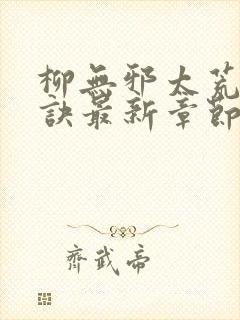 柳無邪太荒
訣最新章節
齊武帝